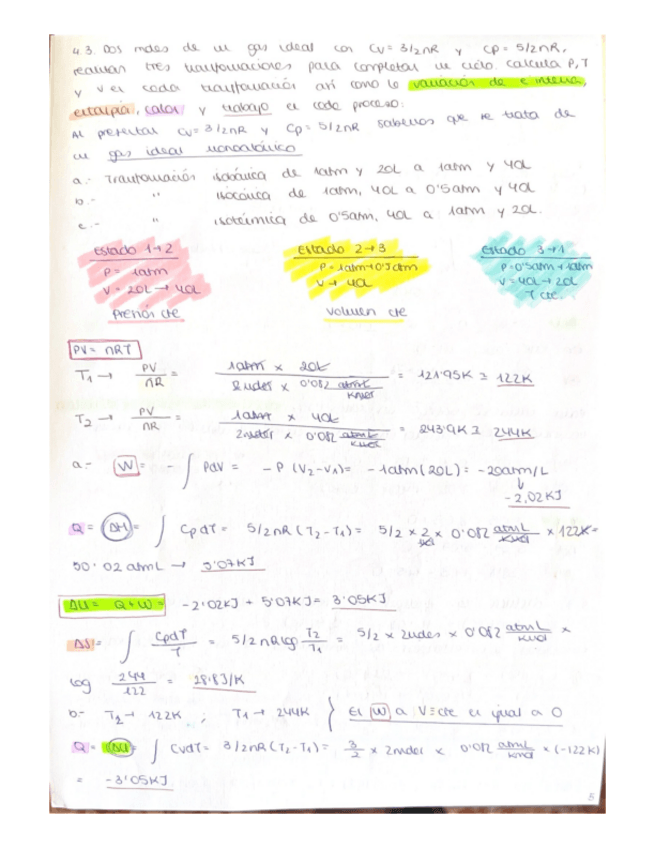 4.3. Dos moles de un gas ideal con Cv= 3/2nR y Cp= 5/2nR,
realizan tres transformaciones para completar un ciclo. Calcula P,T
y V en cada transformación así como la variación de e interna,
entalpía, calor y trabajo en cada proceso:
Al presentar Cv= 3/2nR y Cp= 5/2nR sabemos que se trata de
un gas ideal monoatómico
a.- Transformación isobárica de 1atm y 20L a 1atm y 40L
b.- " isocórica de 1atm, 40L a 0'5atm y 40L
c.- " isotérmica de 0'5atm, 40L a 1atm y 20L.
Estado 1→2 Estado 2→3 Estado 3→1
P= 1atm P=1atm→0'5atm P=0'5atm→1atm
V= 20L→40L V→ 40L V=40L→20L
Presión cte Volumen cte T cte.
PV= nRT
T1 → PV/nR = 1atm x 20L / 2moles x 0'082 atmL/Kmol = 121'95K ≅ 122K
T2 → PV/nR = 1atm x 40L / 2moles x 0'082 atmL/Kmol = 243'9K ≅ 244K
a.- W = - ∫ PdV = -P (V2-V1)= -1atm(20L)= -20atm/L
↓
-2,02KJ
Q = ΔH = ∫ CpdT= 5/2nR(T2-T1)= 5/2 x 2 x 0'082 atmL/Kmol x 122K=
50'02 atmL → 5'07KJ
ΔU= Q+W= -2'02KJ + 5'07KJ= 3'05KJ
ΔS= ∫ CpdT/T = 5/2nRlog T2/T1 = 5/2 x 2moles x 0'082 atmL/Kmol x
log 244/122 = 28'8J/K
b.- T2→ 122K ; T1→ 244K } El W a V=cte es igual a 0
Q= ΔU= ∫ CvdT= 3/2nR(T2-T1)= 3/2 x 2moles x 0'082 atmL/Kmol x (-122K)
= -3'05KJ
5